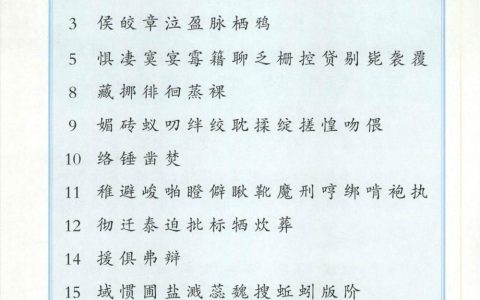 3 侯 皎 章 泣 盈 脉 栖 鸦
5 惧 凄 寞 宴 霉 籍 聊 乏 栅 控 贷 剔 毙 袭 覆
8 藏 挪 徘 徊 蒸 裸
9 媚 砖 蚁 叨 绊 绞 耽 揉 绽 搓 惶 吻 偎
10 络 锤 凿 焚
11 稚 避 峻 啪 瞪 僻 瞅 靴 魔 刑 哼 绑 啃 袍 执
12 彻 迁 泰 迫 批 标 牺 炊 葬
14 援 俱 弗 辩
15 域 惯 圃 盐 溅 蕊 魏 搜 蚯 蚓 版 阶